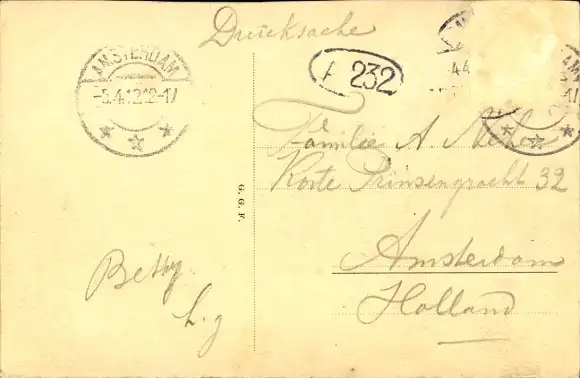 Drucksache
AMSTERDAM
-5.4.12.12-17
A 232
Familie A.
Korte Prinsengracht 32
Amsterdam
Holland
G. G. F.
Betty